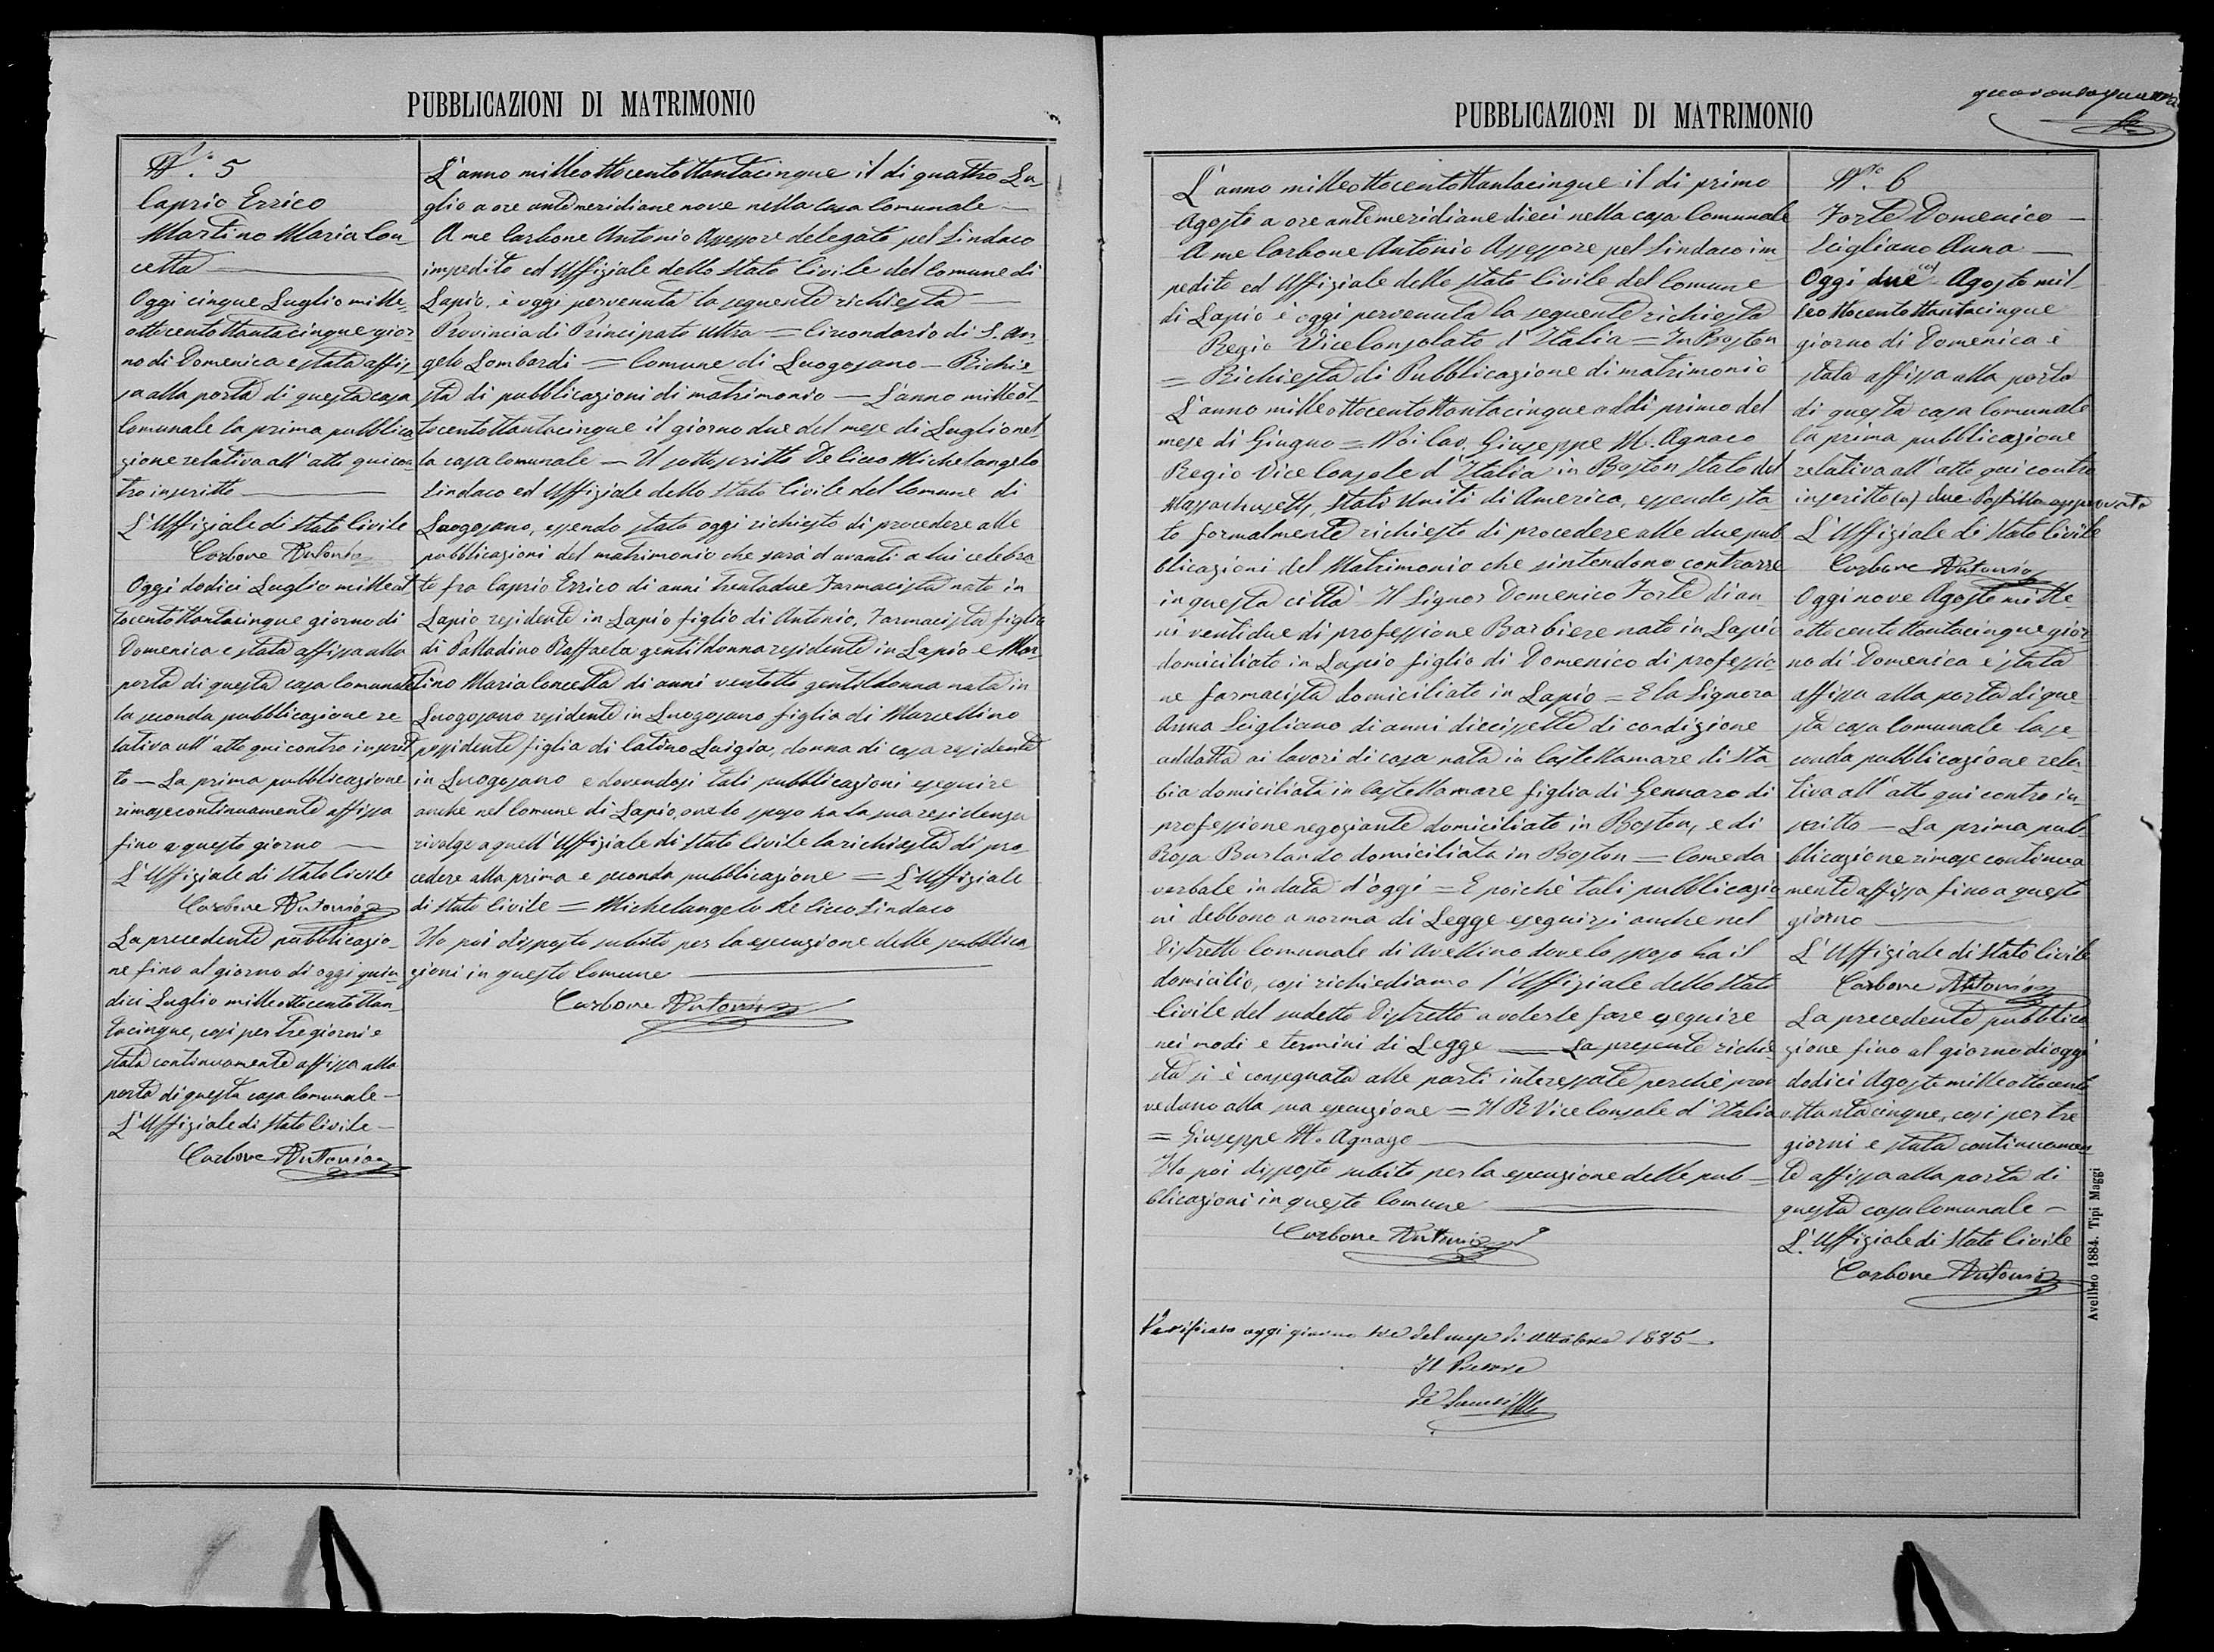 PUBBLICAZIONI DI MATRIMONIO
N.° 5
Caprio Errico
Martino Maria Con
cetta
Oggi cinque Luglio mille
ottocentottantacinque gior
no di Domenica e stata affis
sa alla porta di questa casa
Comunale la prima pubblica
zione relativa all'atto qui con
tro inscritto
L'Uffiziale di Stato Civile
Carbone Antonio
Oggi dodici Luglio milleot
tocentottantacinque giorno di
Domenica e stata affissa alla
porta di questa casa comunale
la seconda pubblicazione re
lativa all'atto qui contro inscrit
to — La prima pubblicazione
rimase continuamente affissa
fino a questo giorno —
L'Uffiziale di Stato Civile
Carbone Antonio
La precedente pubblicazio
ne fino al giorno di oggi quin
dici Luglio milleottocentottan
tacinque, cosi per tre giorni e
stata continuamente affissa alla
porta di questa casa Comunale —
L'Uffiziale di Stato Civile —
Carbone Antonio
L'anno milleottocentottantacinque il di quattro Lu
glio a ore antemeridiane nove nella Casa Comunale —
A me Carbone Antonio Assessore delegato pel Sindaco
impedito ed Uffiziale dello Stato Civile del Comune di
Lapio, è oggi pervenuta la seguente richiesta —
Provincia di Principato Ultra = Circondario di S. An
gelo Lombardi = Comune di Luogosano — Richie
sta di pubblicazioni di matrimonio — L'anno milleot
tocentottantacinque il giorno due del mese di Luglio nel
la casa comunale — Il sottoscritto De Cicco Michelangelo
Sindaco ed Uffiziale dello Stato Civile del Comune di
Luogosano, essendo stato oggi richiesto di procedere alle
pubblicazioni del matrimonio che sarà d'avanti a lui celebra
to fra Caprio Errico di anni trentadue Farmacista nato in
Lapio residente in Lapio figlio di Antonio, Farmacista figlio
di Palladino Raffaela gentildonna residente in Lapio e Mar
tino Maria Concetta di anni ventotto gentildonna nata in
Luogosano residente in Luogosano figlia di Marcellino
possidente figlia di Catino Luigia, donna di casa residente
in Luogosano e dovendosi tali pubblicazioni eseguire
anche nel comune di Lapio, ove lo sposo ha la sua residenza
rivolge a quell'Uffiziale di Stato Civile la richiesta di pro
cedere alla prima e seconda pubblicazione = L'Uffiziale
di Stato Civile = Michelangelo De Cicco Sindaco
Ho poi disposto subito per la esecuzione delle pubblica
zioni in questo Comune
Carbone Antonio
PUBBLICAZIONI DI MATRIMONIO
L'anno milleottocentottantacinque il di primo
Agosto a ore antemeridiane dieci nella casa Comunale
A me Carbone Antonio Assessore pel Sindaco im
pedito ed Uffiziale dello Stato Civile del Comune
di Lapio è oggi pervenuta la seguente richiesta
Regio ViceConsolato d'Italia = In Boston
= Richiesta di Pubblicazione di matrimonio
L'anno milleottocentottantacinque addi primo del
mese di Giugno = Noi Cav. Giuseppe M. Agnaco
Regio Vice Console d'Italia in Boston Stato del
Massachusetts, Stati Uniti di America, essendo sta
to formalmente richiesto di procedere alle due pub
blicazioni del Matrimonio che sintendono contrarre
in questa città Il Signor Domenico Forte di an
ni ventidue di professione Barbiere nato in Lapio
domiciliato in Lapio figlio di Domenico di professio
ne farmacista domiciliato in Lapio = E la Signora
Anna Scigliano di anni diecissette di condizione
addatta ai lavori di casa nata in Castellamare di Sta
bia domiciliata in Castellamare figlia di Gennaro di
professione negoziante domiciliato in Boston, e di
Rosa Burlando domiciliata in Boston = Come da
verbale in data d'oggi = E poichè tali pubblicazio
ni debbono a norma di Legge eseguirsi anche nel
Distretto Comunale di Avellino dove lo sposo ha il
domicilio, cosi richiediamo l'Uffiziale dello Stato
Civile del sudetto Distretto a volerle fare eseguire
nei modi e termini di Legge — La presente richie
sta si è consegnata alle parti interessate perchè prov
vedano alla sua esecuzione = Il R. Vice Console d'Italia
= Giuseppe M. Agnago
Ho poi disposto subito per la esecuzione delle pub =
blicazioni in questo Comune
Carbone Antonio
Verificato oggi giorno tre del mese di Ottobre 1885
Il Pretore
N.° 6
Forte Domenico —
Scigliano Anna —
Oggi due (a) Agosto mil
leottocentottantacinque
giorno di Domenica è
stata affissa alla porta
di questa casa Comunale
la prima pubblicazione
relativa all'atto qui contro
inscritto (a) due Postilla approvata
L'Uffiziale di Stato Civile
Carbone Antonio
Oggi nove Agosto mille
ottocentottantacinque gior
no di Domenica è stata
affissa alla porta di que
sta casa comunale la se
conda pubblicazione rela
tiva all'atto qui contro in
scritto — La prima pub
blicazione rimase continua
mente affissa fino a questo
giorno
L'Uffiziale di Stato Civile
Carbone Antonio
La precedente pubblica
zione fino al giorno di oggi
dodici Agosto milleottocento
ottantacinque, cosi per tre
giorni e stata continuamen
te affissa alla porta di
questa casa Comunale —
L'Uffiziale di Stato Civile
Carbone Antonio
Avellino 1884. Tipi Maggi